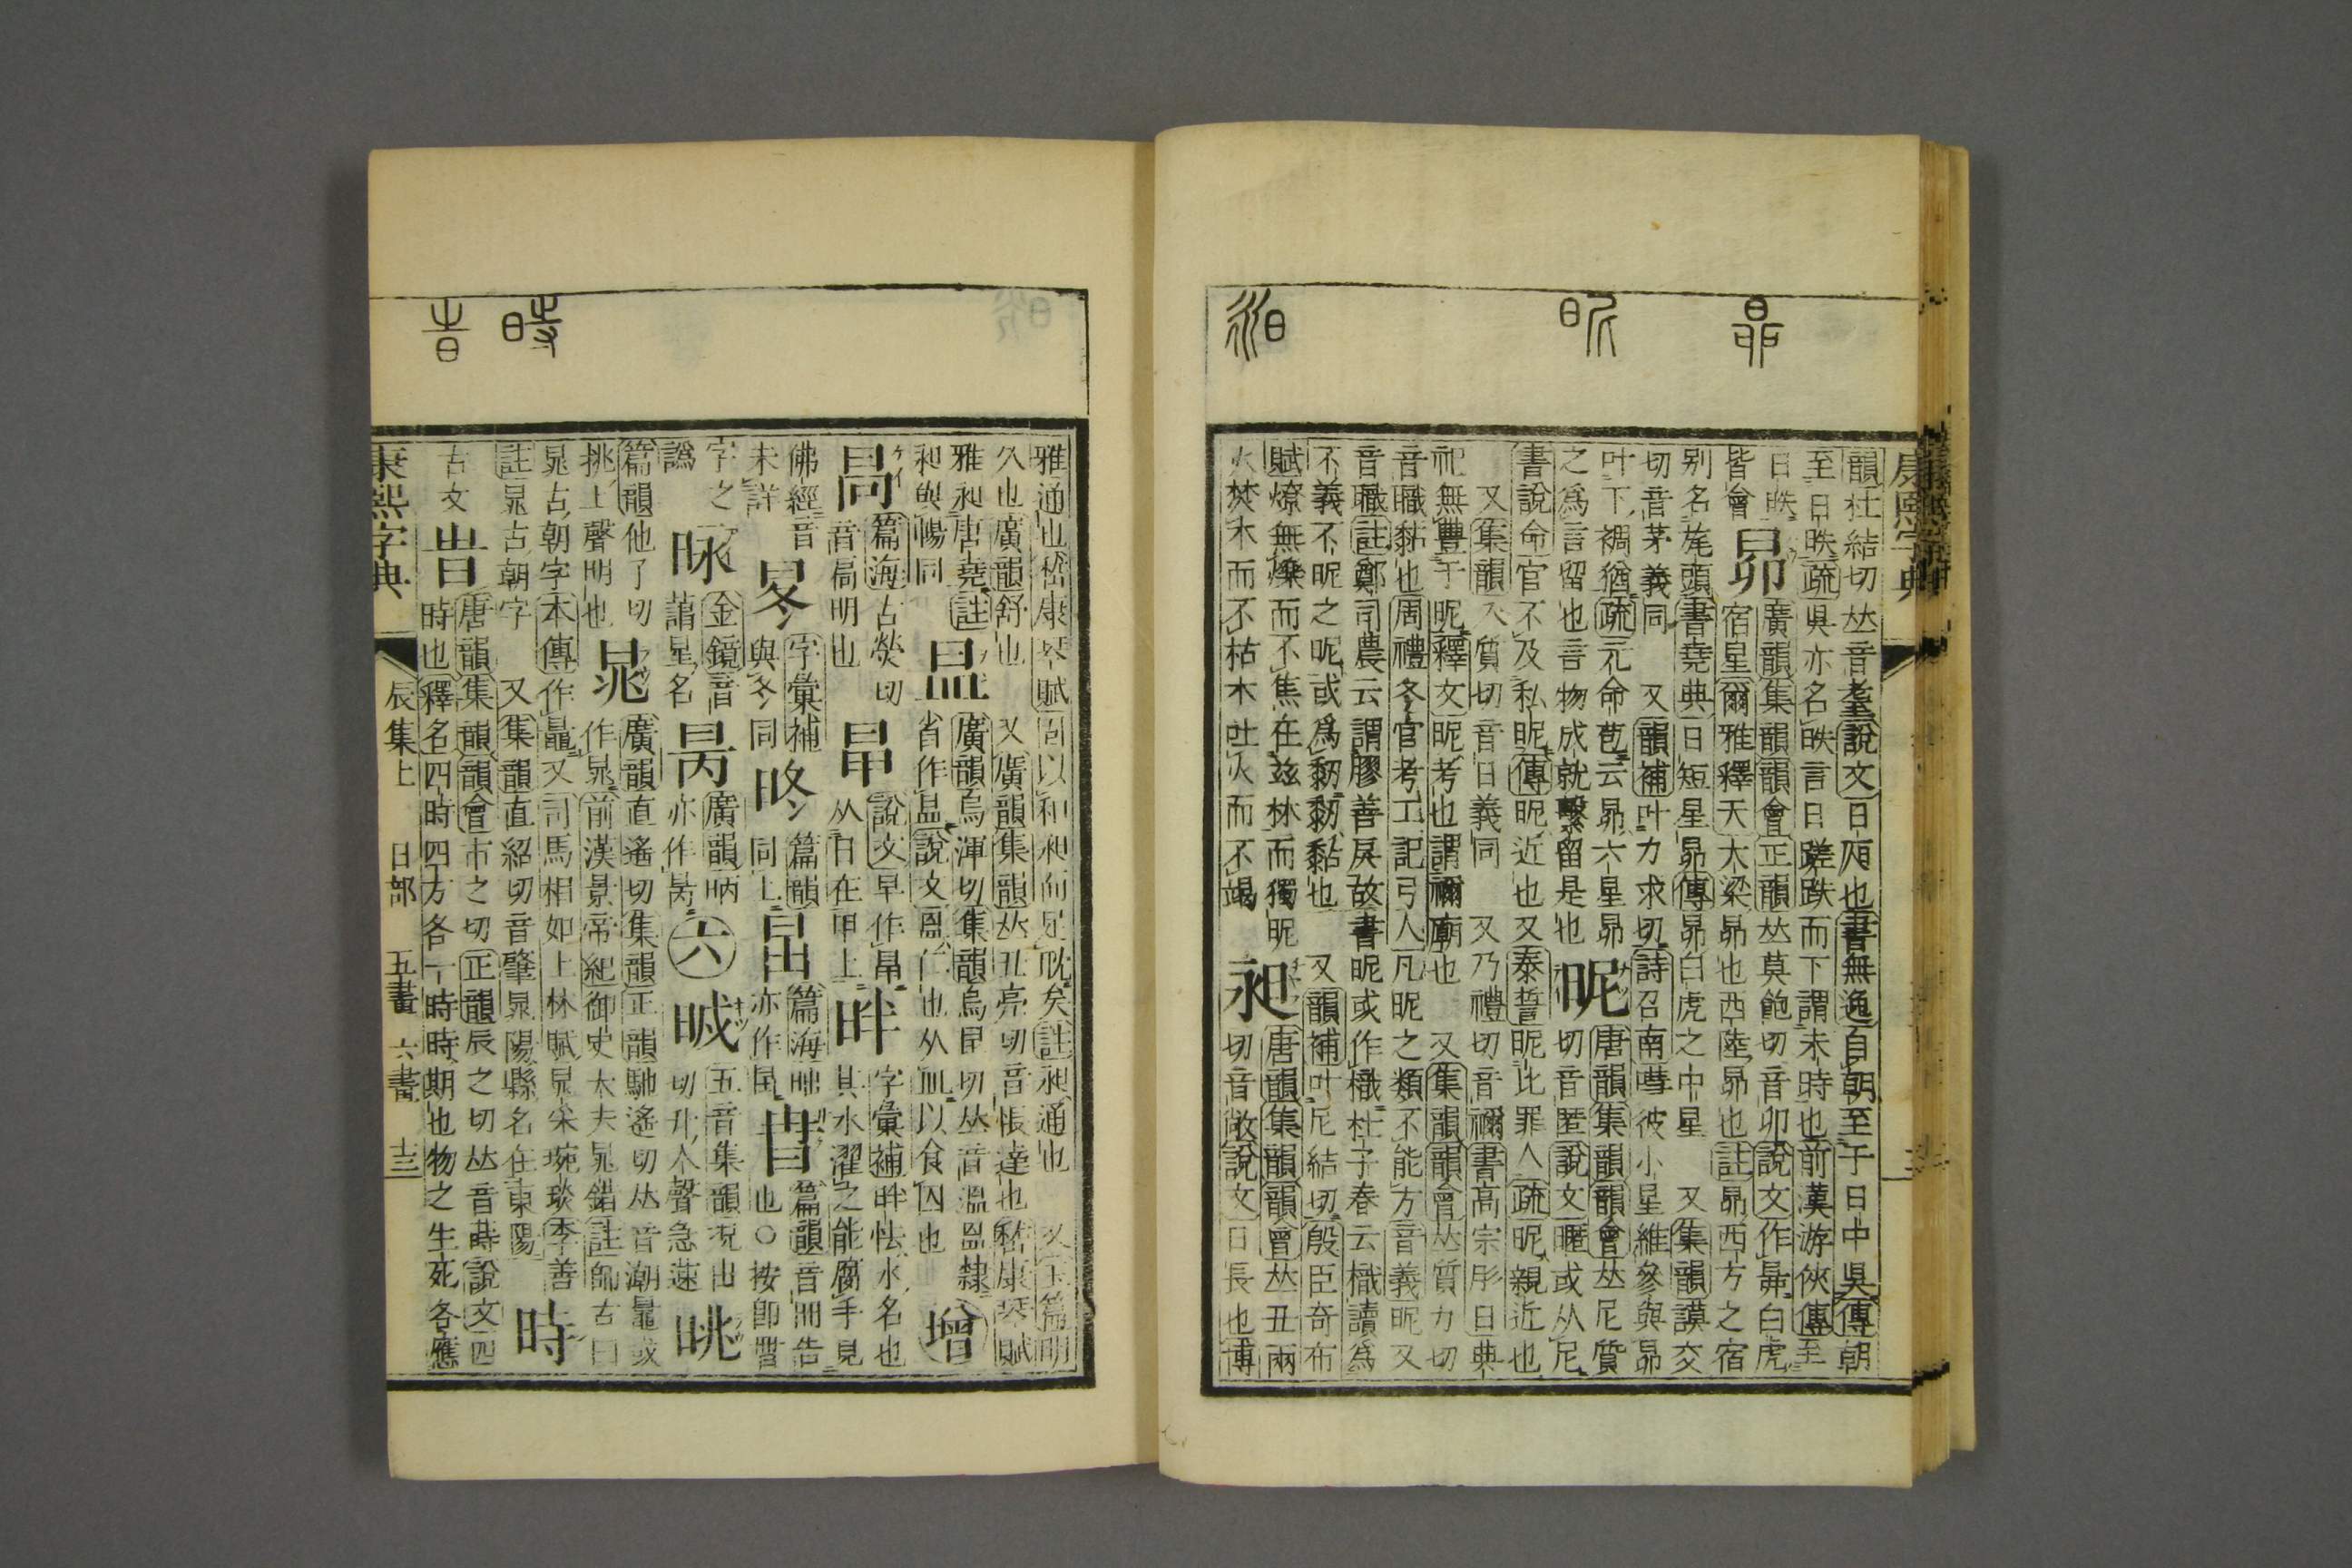 康熙字典
韻杜結切𠀤音耋說文日㫼也書無逸自朝至于日中昃傳朝
至日昳疏昃亦名昳言日蹉跌而下謂未時也前漢游俠傳至
日昳 昴 廣韻集韻韻會正韻𠀤莫飽切音卯說文作昴白虎
皆會 宿星爾雅釋天大梁昴也西陸昴也註昴西方之宿
别名旄頭書堯典日短星昴傳昴白虎之中星 又集韻謨交
切音茅義同 又韻補叶力求切詩召南嘒彼小星維參與昴
叶下裯猶疏元命苞云昴六星昴 昵 唐韻集韻韻會𠀤尼質
之爲言留也言物成就繫留是也 切音暱說文暱或从尼
書說命官不及私昵傳昵近也又泰誓昵比罪人疏昵親近也
又集韻入質切音日義同 又乃禮切音禰書高宗肜日典
祀無豐于昵釋文昵考也謂禰廟也 又集韻韻會𠀤質力切
音職黏也周禮冬官考工記弓人凡昵之類不能方音義昵又
音職註鄭司農云謂膠善戾故書昵或作樴杜子春云樴讀爲
不義不昵之昵或爲䵒䵒黏也 又韻補叶尼結切殷臣奇布
賦燎無爍而不焦在兹林而獨昵 昶 唐韻集韻韻會𠀤丑兩
火焚木而不枯木吐火而不竭 切音敞說文日長也博
雅通也嵇康琴賦固以和昶而足耽矣註昶通也 又玉篇明
久也廣韻舒也 又廣韻集韻𠀤丑亮切音悵達也嵇康琴賦
雅昶唐堯註 昷 廣韻烏渾切集韻烏昆切𠀤音溫昷隸 增
昶與暢同 省作昷說文𥁕仁也从皿以食囚也
篇海古熒切 說文早作𣅀 畔 字彙補畔怯水名也
明也 从日在甲上 其水濯之能腐手見
佛經音 字彙補 與冬同 篇韻 同上 篇海 亦作
未詳 篇韻音冊告也○按卽曹
字之譌 昹 金鏡音 星名 昺 廣韻昞 亦作昺 六 五音集韻 出
切 入聲急速 晀
篇韻他了切 晁 廣韻直遙切集韻正韻馳遙切𠀤音潮鼂或
挑上聲明也 作晁前漢景帝紀御史大夫晁錯註師古曰
晁古朝字本傳作鼂又司馬相如上林賦晁采琬琰李善
註晁古朝字 又集韻直紹切音肇晁陽縣名在東陽 時
古文 旹 唐韻集韻韻會市之切正韻辰之切𠀤音蒔說文四
時也釋名四時四方各一時時期也物之生死各應
康熙字典 辰集上 日部 五畫 六畫 十三